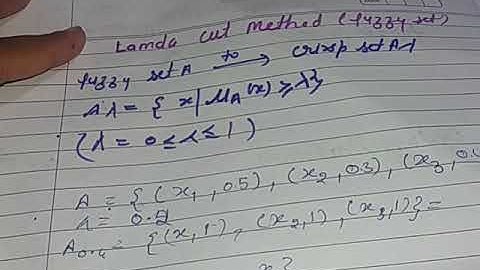 Lamda cut Method (fuzzy set)
fuzzy set A to → crisp set Aλ
Aλ = { x | μA(x) ≥ λ}
(λ = 0 ≤ λ ≤ 1)
A = {(x1, 0.5), (x2, 0.3), (x3, 0.
λ = 0.
A0.4 = {(x, 1), (x2, 1), (x3, 1)} =